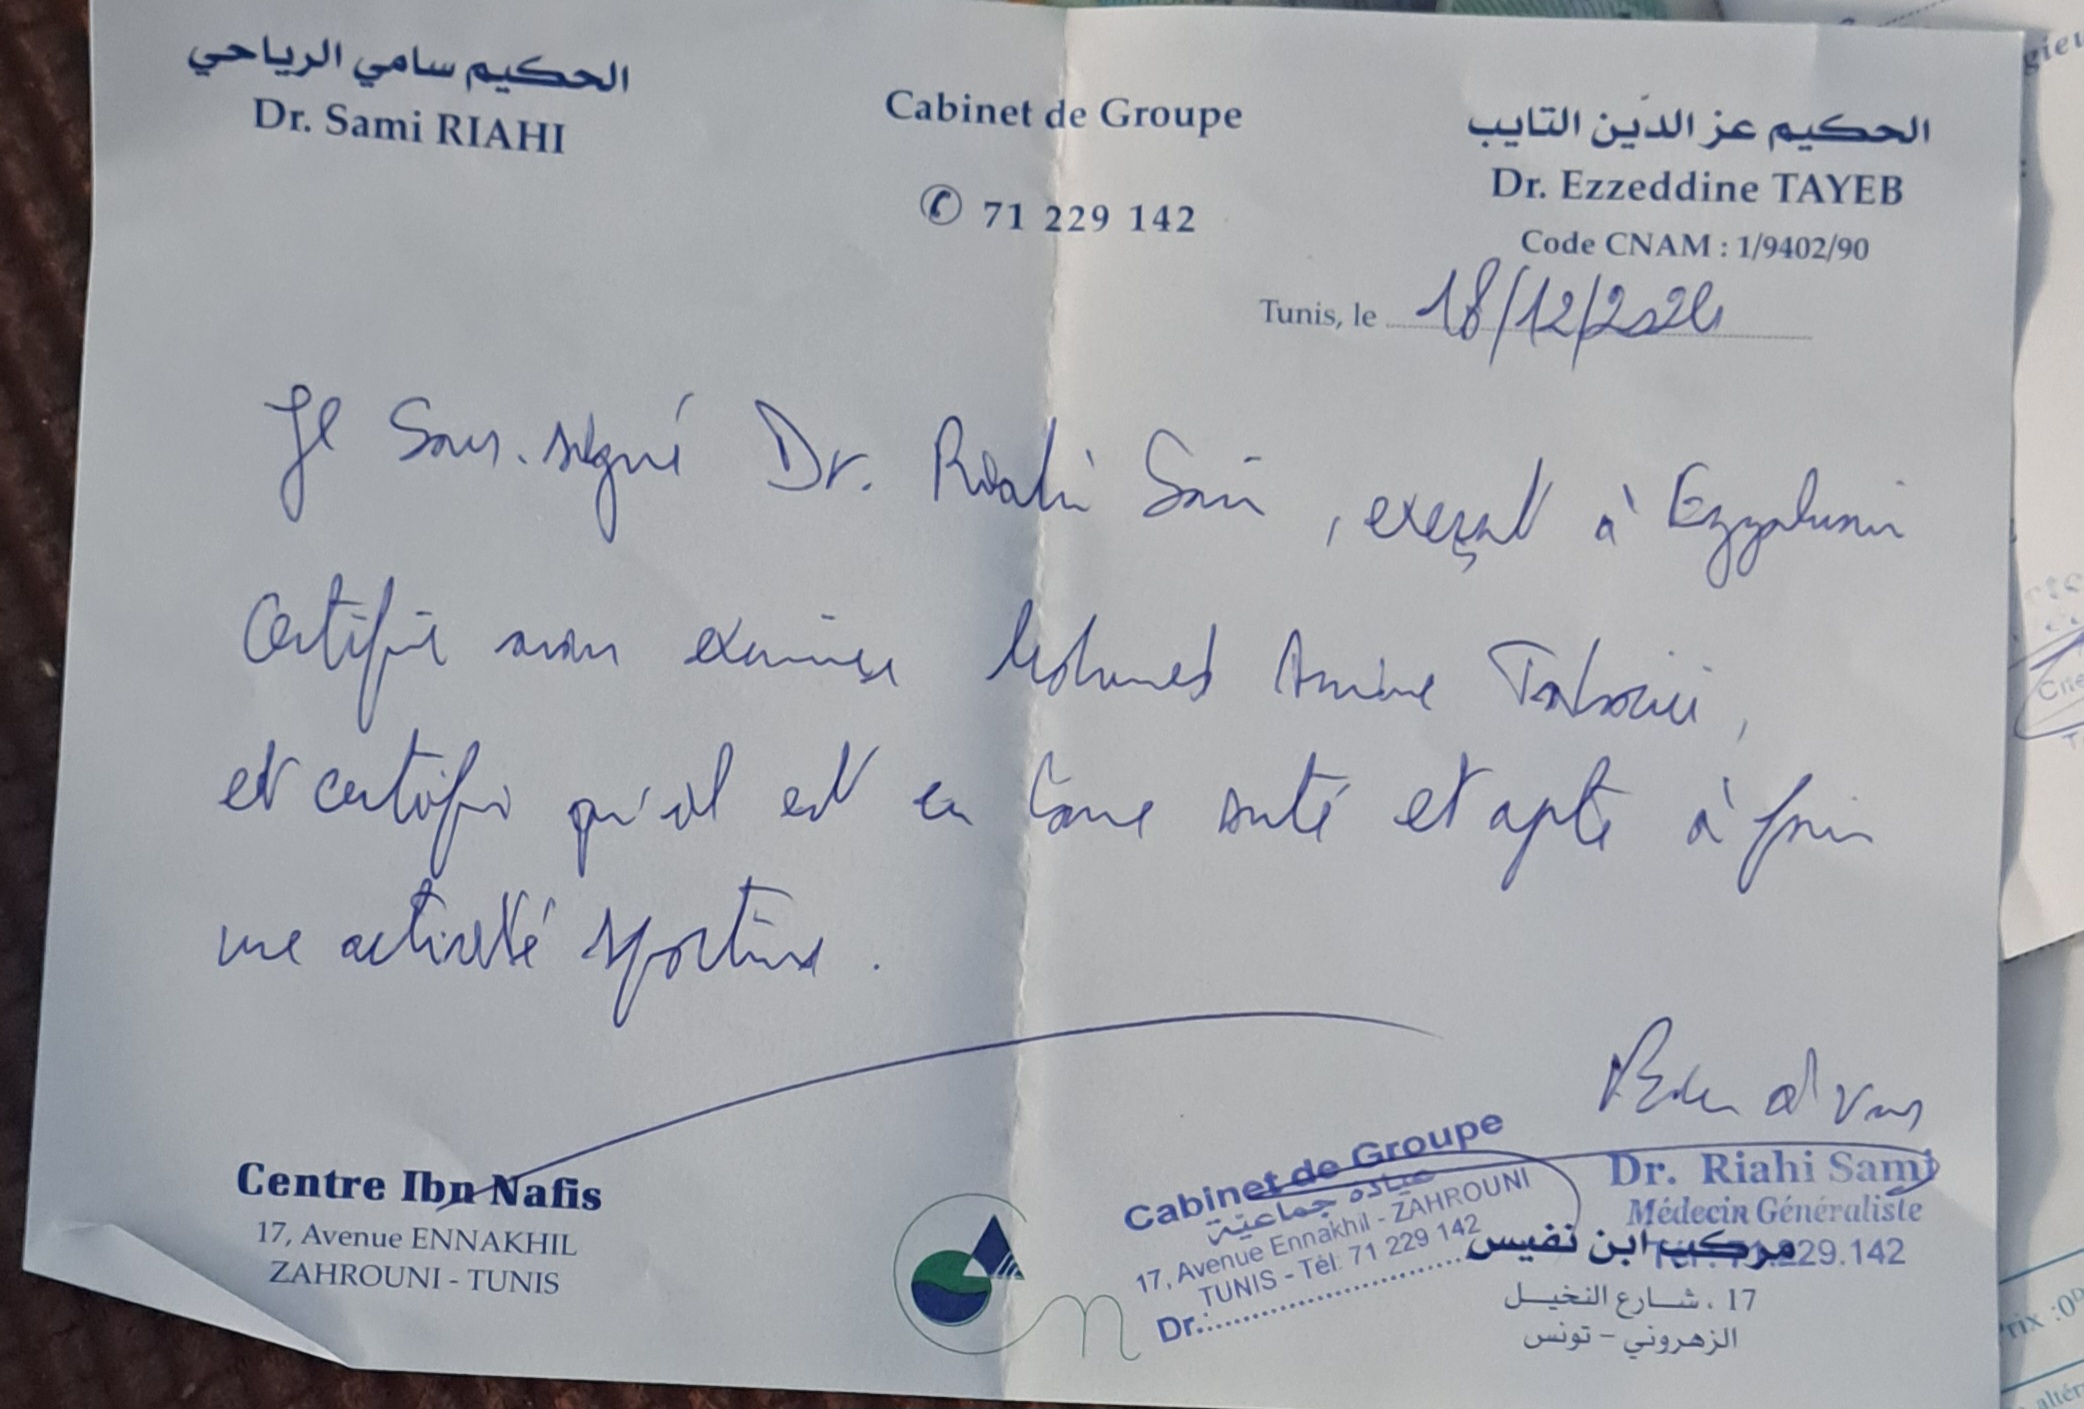 الحكيم سامي الرياحي
Dr. Sami RIAHI
Cabinet de Groupe
✆ 71 229 142
الحكيم عز الدين التايب
Dr. Ezzeddine TAYEB
Code CNAM : 1/9402/90
Tunis, le 18/12/2024
Je sous.signé Dr. Riahi Sami, exerçant à Ezzahrouni
certifie avoir examiné Mohamed Amine,
et certifie qu'il est en bonne santé et apte à faire
une activité sportive.
Centre Ibn Nafis
17, Avenue ENNAKHIL
ZAHROUNI - TUNIS
Cabinet de Groupe
عيادة جماعية
17, Avenue Ennakhil - ZAHROUNI
TUNIS - Tél: 71 229 142
Dr.:
Dr. Riahi Sami
Médecin Généraliste
229.142
مركب ابن نفيس
17 ، شارع النخيل
الزهروني - تونس